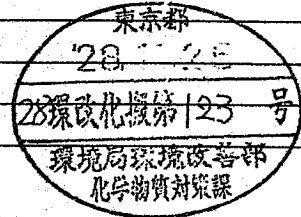 東京都
'28.11.25
28環改化援第123号
環境局環境改善部
化学物質対策課